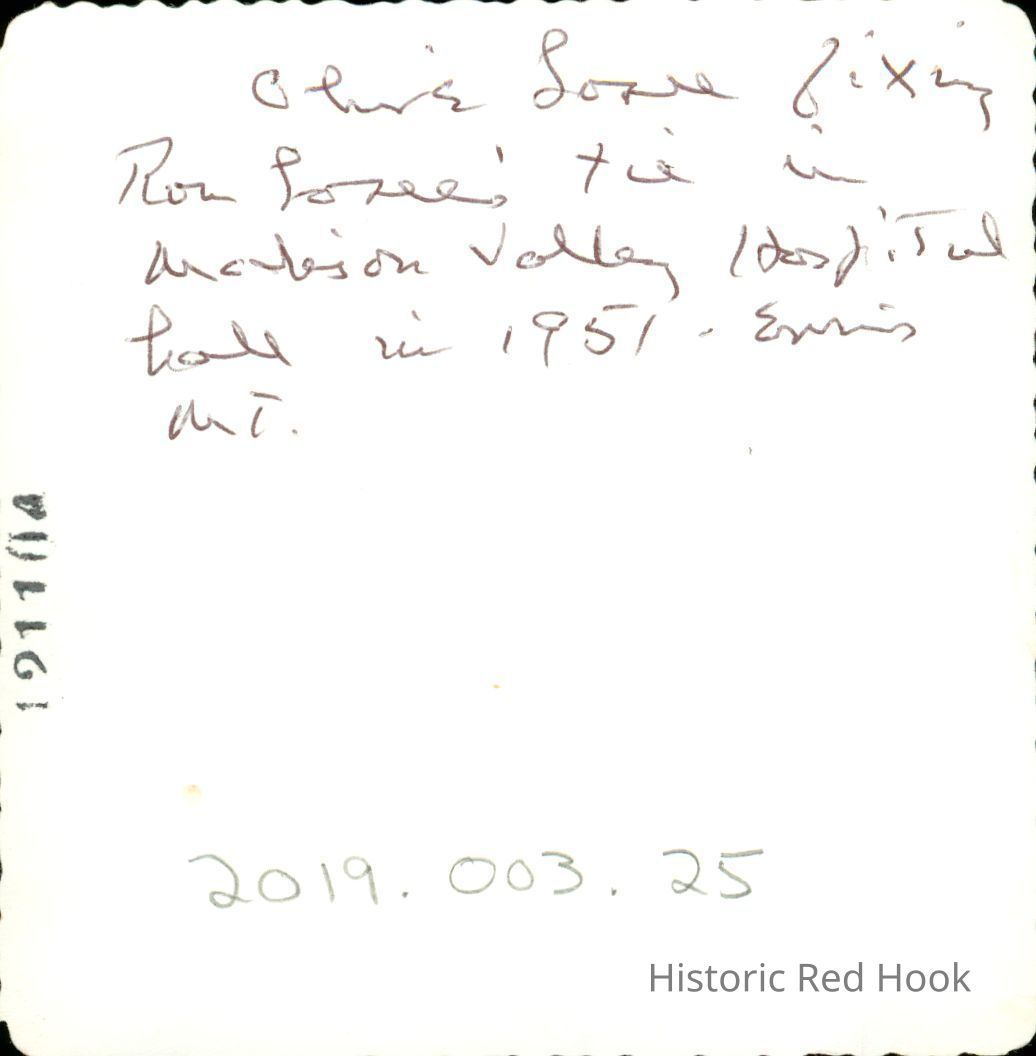 Olive Losee fixing
Ron Losee's tie in
Madison Valley Hospital
hall in 1951 - Ennis
MT.
2019.003.25
Historic Red Hook